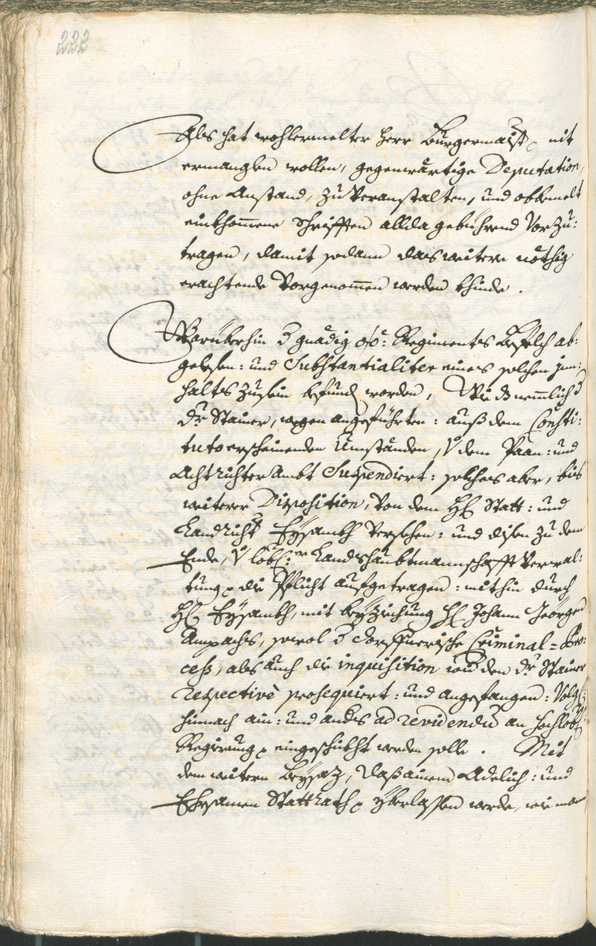 222
Alß hat wohlermelter Herr Burgermaister nit
ermanglen wollen, gegenwärtige Deputation,
ohne Anstand, zu veranstalten, und obbemelt
einkhommene Schrifften allda gebührend vorzu:
tragen, damit sodann das weitere nöthig
erachtende vorgenommen werden khünde.
Warüberhin gnädig Regiments Befelch ab:
gelesen: und Substantialiter eines solchen jnn:
halts zu sein befund worden, Wie nemmlich
Dr Stairer, wegen angeführten: auß dem Consti:
tuto erscheinenden Umbständen, dem Paan: und
Achtrichter Ambt Suspendiert: solches aber, bis
weitere Disposition, von dem H: Statt: und
Landrichter versehen: und disen zu dem
Ende, löbl: Landshaubtmannschafft Verwal:
tung die Pflicht aufgetragen: mithin durch
mit beyziehung H: Johann Georgen
Ampachs, sowol Criminal=Pro:
cess, als auch die inquisition wider den Dr Stairer
respectivè prosequiert: und angefangen: Volg:
hinnach ain: und anders ad revidendum an hochlob:
Regierung eingeschickht werden solle. Mit
dem weitern Beysaz, daß ainem Adelich: und
Ehrsamen Stattrath yberlassen werde, wie man